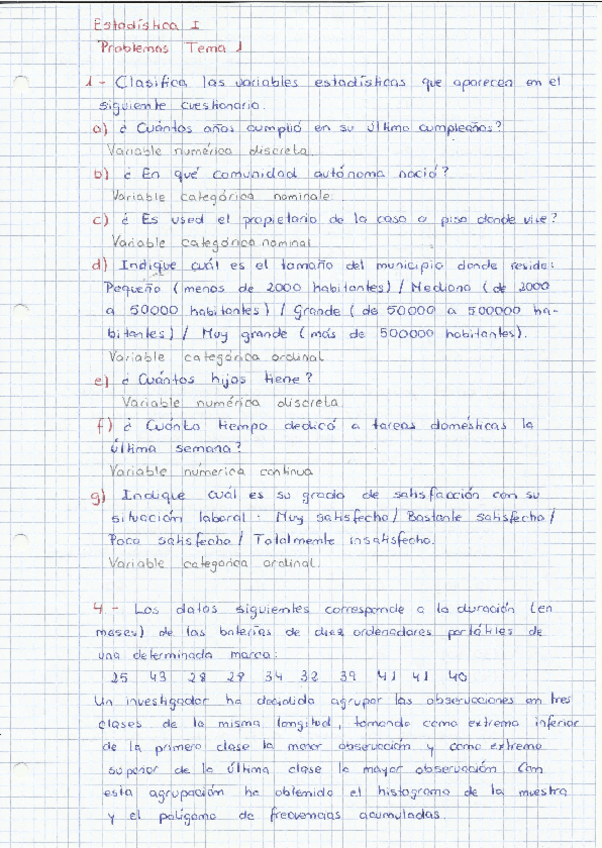 Estadística I
Problemas Tema 1
1 - Clasifica las variables estadísticas que aparecen en el
siguiente cuestionario.
a) ¿ Cuántos años cumplió en su último cumpleaños?
Variable numérica discreta.
b) ¿ En qué comunidad autónoma nació?
Variable categórica nominale.
c) ¿ Es used el propietario de la casa o piso donde vive?
Variable categórica nominal
d) Indique cuál es el tamaño del municipio donde reside:
Pequeño (menos de 2000 habitantes) / Mediano (de 2000
a 50000 habitantes) / Grande (de 50000 a 500000 ha-
bitantes) / Muy grande (más de 500000 habitantes).
Variable categórica ordinal
e) ¿ Cuántos hijos tiene?
Variable numérica discreta
f) ¿ Cuánto tiempo dedicó a tareas domésticas la
última semana?
Variable númerica continua
g) Indique cuál es su grado de satisfacción con su
situación laboral. Muy satisfecho / Bastante satisfecho /
Poco satisfecho / Totalmente insatisfecho.
Variable categorica ordinal.
4 - Los datos siguientes corresponde a la duración (en
meses) de las baterías de diez ordenadores portátiles de
una determinada marca:
25 43 28 28 34 32 39 41 41 40
Un investigador ha decidido agrupar las observaciones en tres
clases de la misma longitud, tomando como extremo inferior
de la primera clase la menor observación y como extremo
superior de la última clase la mayor observación. Con
esta agrupación ha obtenido el histograma de la muestra
y el polígomo de frecuencias acumuladas.